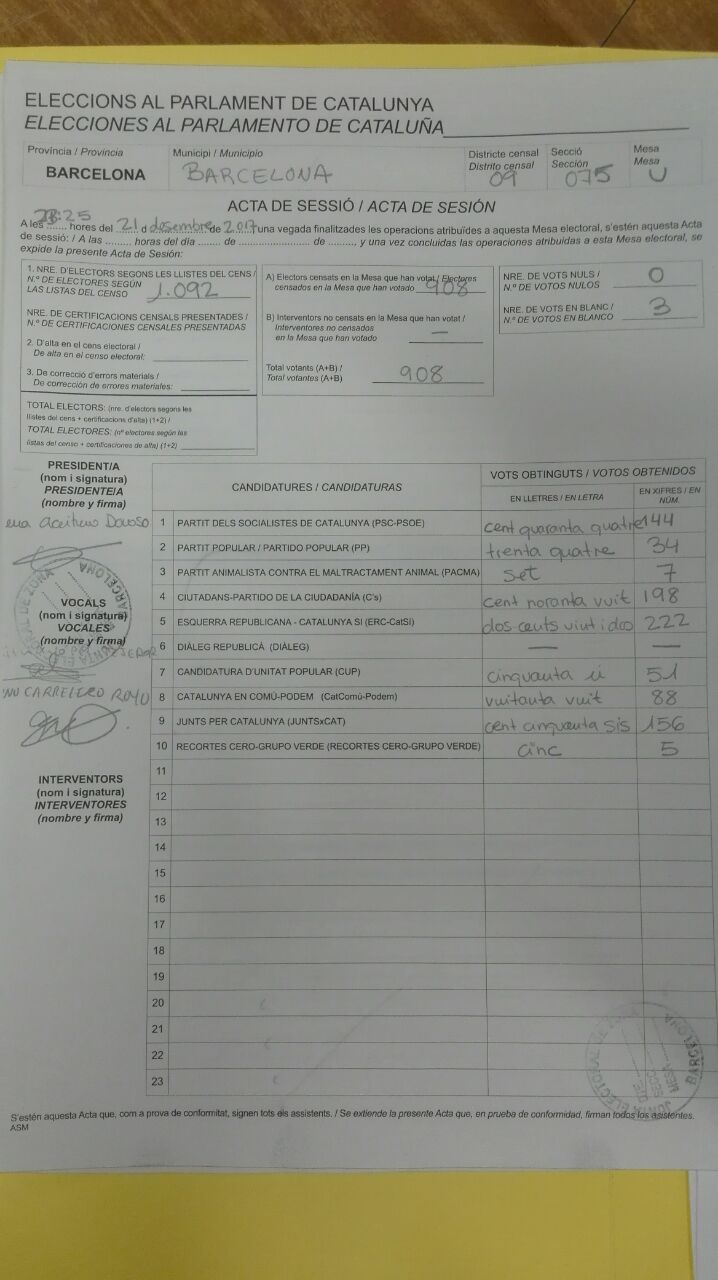 ELECCIONS AL PARLAMENT DE CATALUNYA
ELECCIONES AL PARLAMENTO DE CATALUÑA
Província / Provincia
BARCELONA
Municipi / Municipio
BARCELONA
Districte censal
Distrito censal
09
Secció
Sección
075
Mesa
Mesa
U
ACTA DE SESSIÓ / ACTA DE SESIÓN
A les 23:25 hores del 21 d desembre de 2017 una vegada finalitzades les operacions atribuïdes a aquesta Mesa electoral, s'estén aquesta Acta
de sessió: / A las ......... horas del día ....... de .................... de ........, y una vez concluidas las operaciones atribuidas a esta Mesa electoral, se
expide la presente Acta de Sesión:
1. NRE. D'ELECTORS SEGONS LES LLISTES DEL CENS /
N.º DE ELECTORES SEGÚN
LAS LISTAS DEL CENSO 1.092
NRE. DE CERTIFICACIONS CENSALS PRESENTADES /
N.º DE CERTIFICACIONES CENSALES PRESENTADAS
2. D'alta en el cens electoral /
De alta en el censo electoral:
3. De correcció d'errors materials /
De corrección de errores materiales:
TOTAL ELECTORS: (nre. d'electors segons les
llistes del cens + certificacions d'alta) (1+2) /
TOTAL ELECTORES: (nº electores según las
listas del censo + certificaciones de alta) (1+2)
A) Electors censats en la Mesa que han votat / Electores
censados en la Mesa que han votado 908
B) Interventors no censats en la Mesa que han votat /
Interventores no censados
en la Mesa que han votado —
Total votants (A+B) /
Total votantes (A+B) 908
NRE. DE VOTS NULS /
N.º DE VOTOS NULOS 0
NRE. DE VOTS EN BLANC /
N.º DE VOTOS EN BLANCO 3
PRESIDENT/A
(nom i signatura)
PRESIDENTE/A
(nombre y firma)
VOCALS
(nom i signatura)
VOCALES
(nombre y firma)
CARRETERO ROYO
INTERVENTORS
(nom i signatura)
INTERVENTORES
(nombre y firma)
CANDIDATURES / CANDIDATURAS
VOTS OBTINGUTS / VOTOS OBTENIDOS
EN LLETRES / EN LETRA
EN XIFRES / EN NÚM.
1 PARTIT DELS SOCIALISTES DE CATALUNYA (PSC-PSOE) cent quaranta quatre 144
2 PARTIT POPULAR / PARTIDO POPULAR (PP) trenta quatre 34
3 PARTIT ANIMALISTA CONTRA EL MALTRACTAMENT ANIMAL (PACMA) set 7
4 CIUTADANS-PARTIDO DE LA CIUDADANÍA (C's) cent noranta vuit 198
5 ESQUERRA REPUBLICANA - CATALUNYA SI (ERC-CatSí) dos-cents vint i dos 222
6 DIÀLEG REPUBLICÀ (DIÀLEG) — —
7 CANDIDATURA D'UNITAT POPULAR (CUP) cinquanta ú 51
8 CATALUNYA EN COMÚ-PODEM (CatComú-Podem) vuitanta vuit 88
9 JUNTS PER CATALUNYA (JUNTSxCAT) cent cinquanta sis 156
10 RECORTES CERO-GRUPO VERDE (RECORTES CERO-GRUPO VERDE) cinc 5
11
12
13
14
15
16
17
18
19
20
21
22
23
S'estén aquesta Acta que, com a prova de conformitat, signen tots els assistents. / Se extiende la presente Acta que, en prueba de conformidad, firman todos los asistentes.
ASM
JUNTA ELECTORAL DE ZONA BARCELONA
DTE.
SECC.
MESA